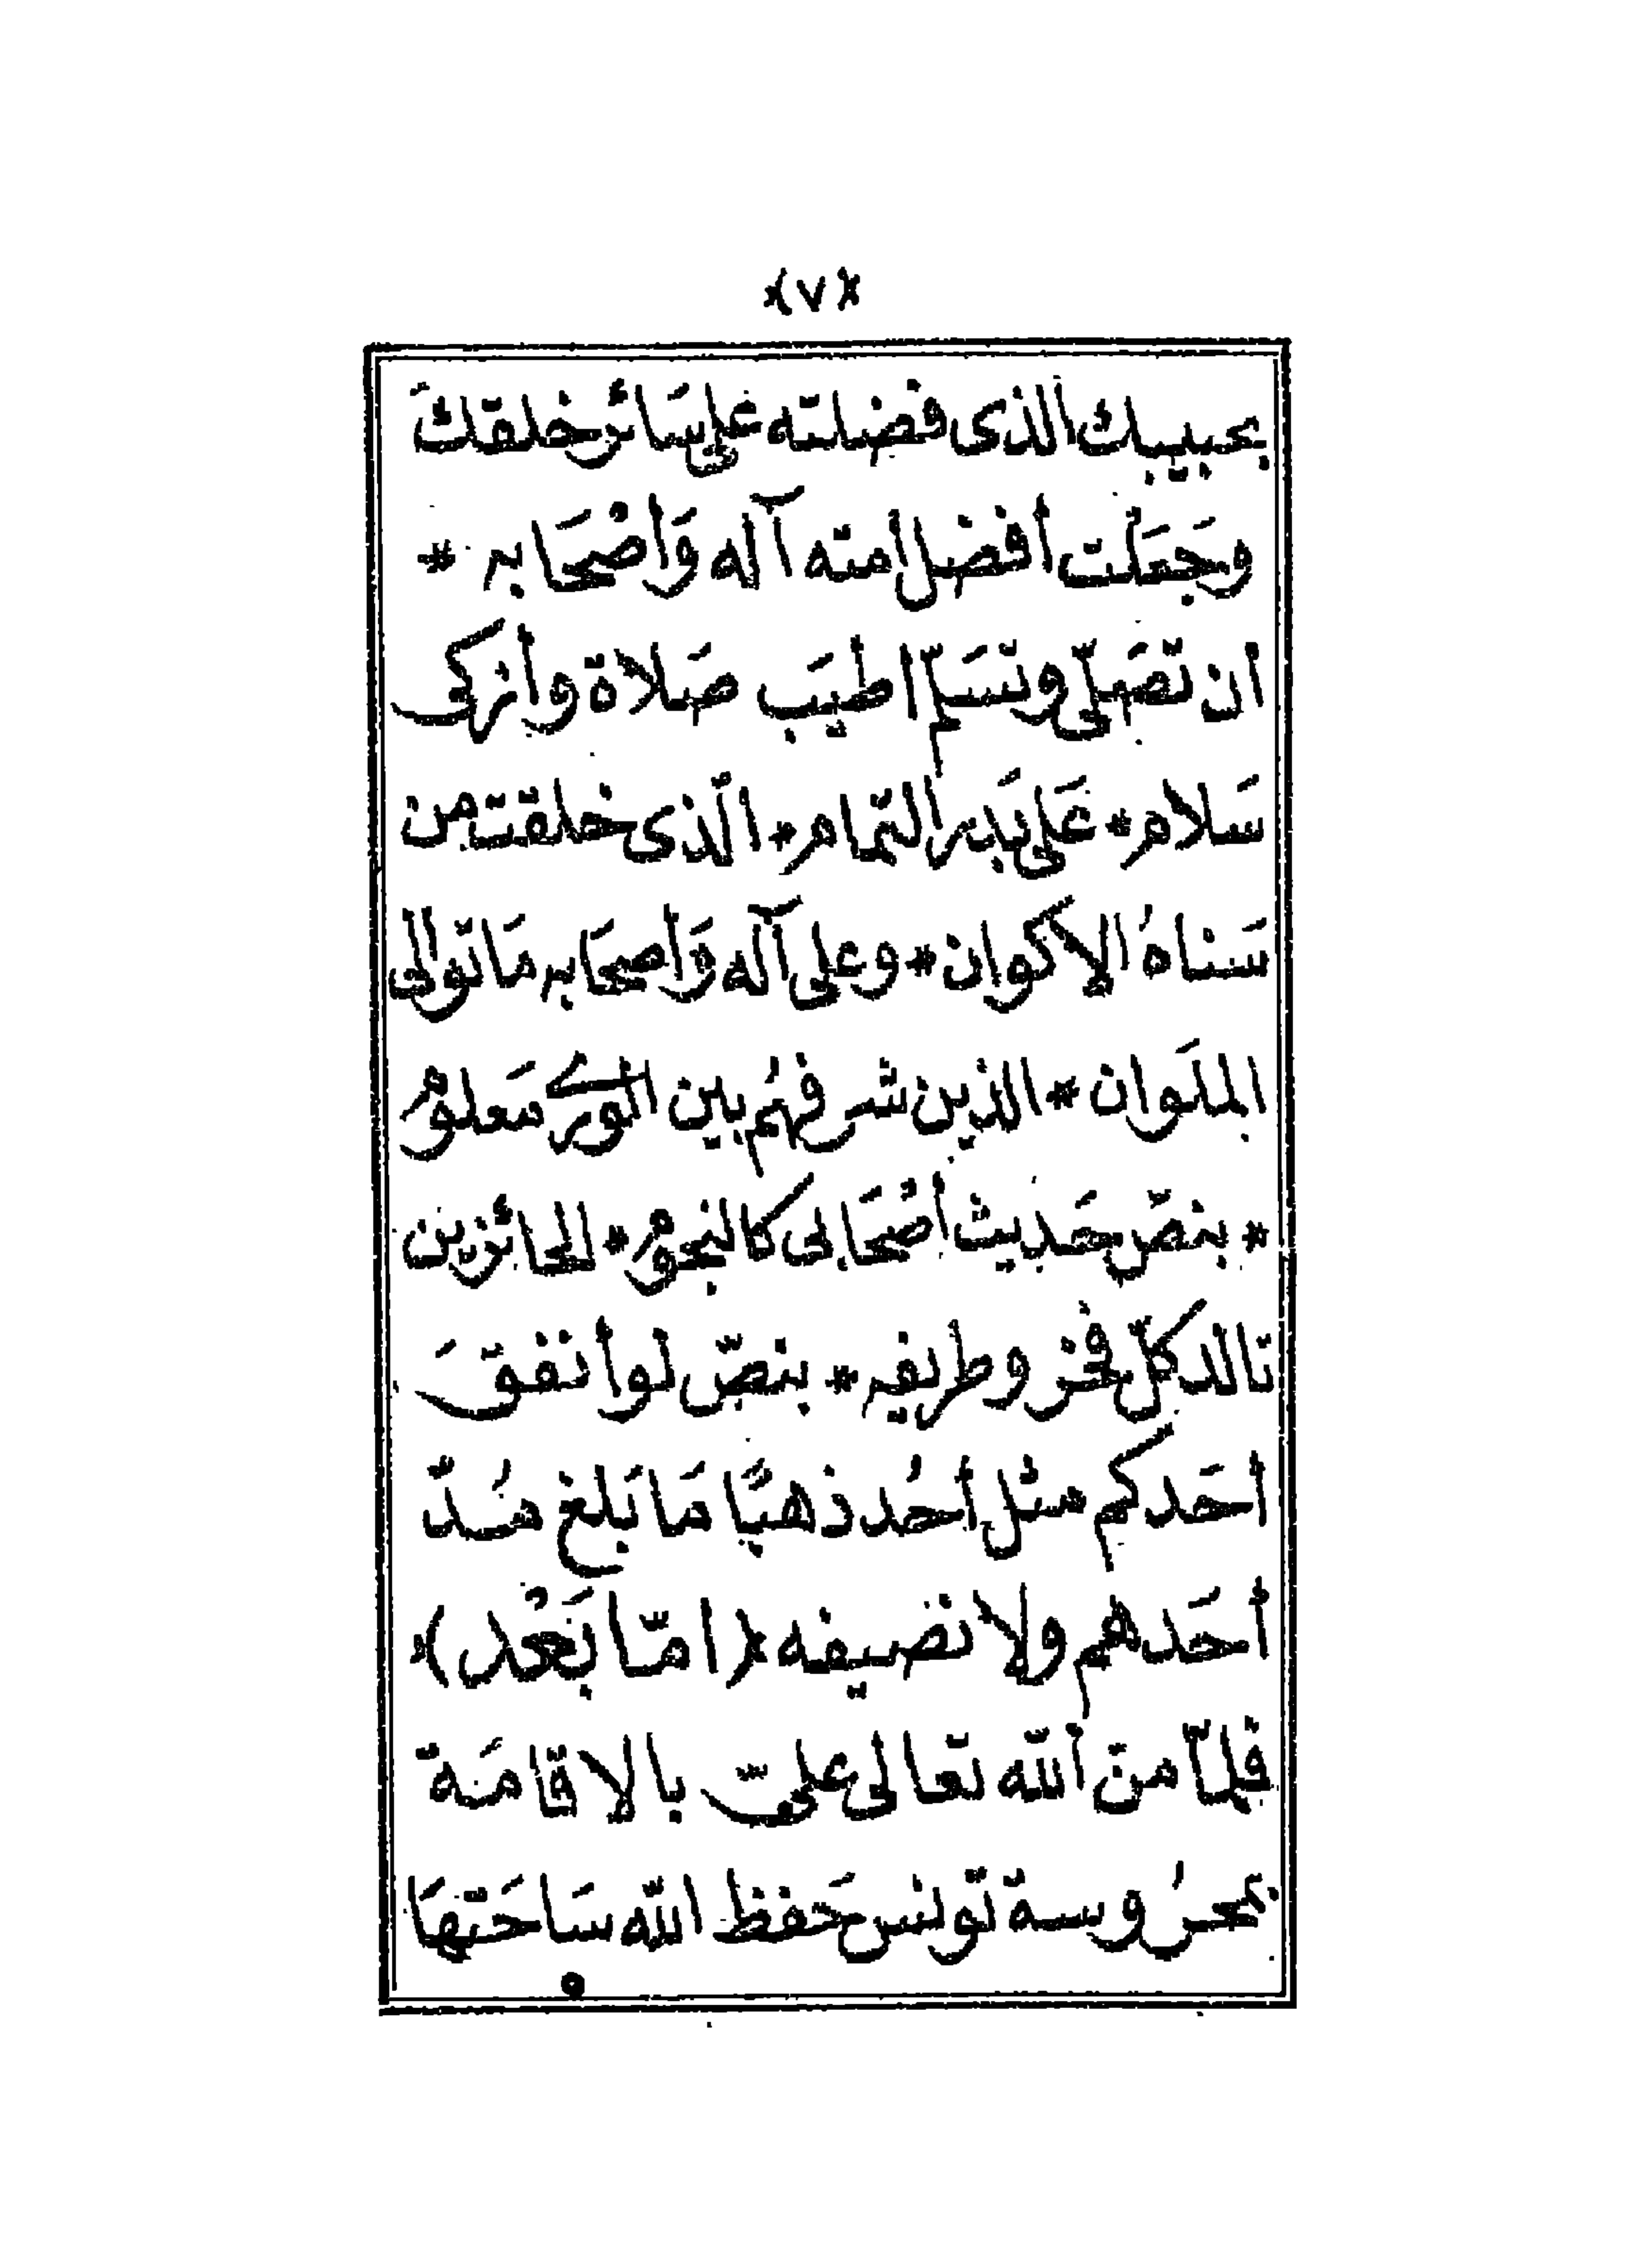 ﴿٧﴾
بحبيبك الذى فضلته على سَائر خلقكَ
وجَعَلت أفضل امته آله وَأصْحَابه *
ان تصَلّى وتسَلّم اطيَب صَلاة وأزكى
سَلام * عَلى بَدره التمام * الّذى خلقت من
سَناهُ الاكوان * وعلى آله وَأصحَابه مَا توالى
الملَوان * الذين شرفهُم بين الورى مَعلومْ
* بنصّ حَديث أصْحَابى كالنجومْ * الحائزين
تالد كلّ فخْر وطريفه * بنصّ لو أنفقَ
أحَدكم مثل أحُد ذهبًا مَا بَلغ مُدّ
أحَدهم ولا نصيفه ﴿امّا بَعْد﴾
فلمّا منّ الله تعالى علىّ بالاقامَة
بمحرُوسة تونس حَفظ الله سَاحَتهَا